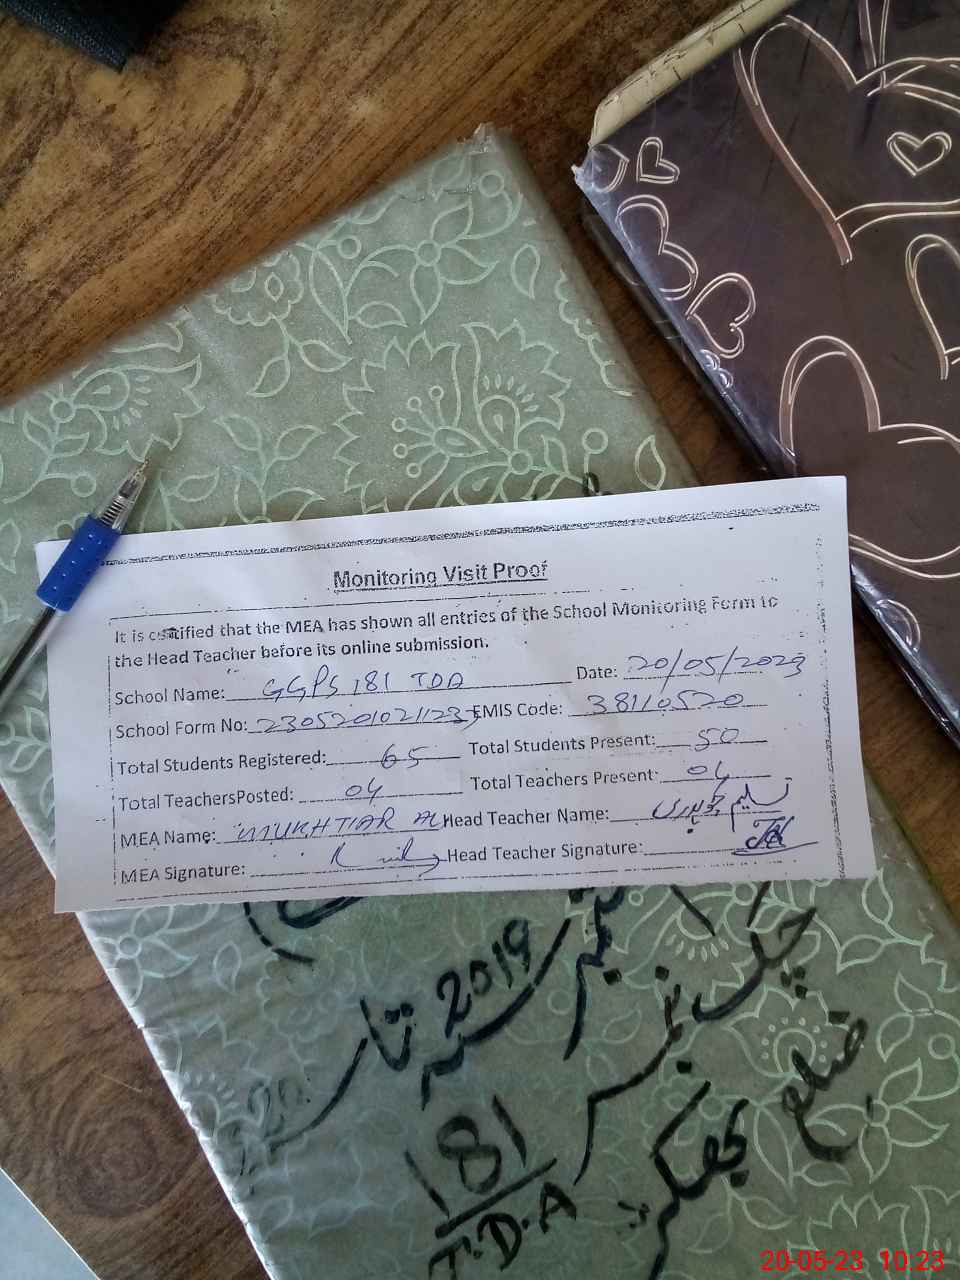 Monitoring Visit Proof
It is certified that the MEA has shown all entries of the School Monitoring Form to
the Head Teacher before its online submission.
School Name: GGPS 181 TDA Date: 20/05/2023
School Form No: 2305201021123 EMIS Code: 38110520
Total Students Registered: 65 Total Students Present: 50
Total TeachersPosted: 04 Total Teachers Present: 04
MEA Name: MUKHTIAR ALI Head Teacher Name: تسلیم چوہدری
MEA Signature: Head Teacher Signature:
2019 تا
چک نمبر 181
T.D.A
ضلع بھکر
20-05-23 10:23